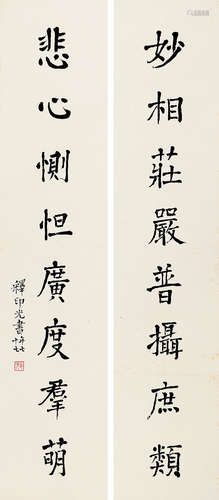 妙相莊嚴普攝庶類
悲心惻怛廣度羣萌
釋印光書 年七十七